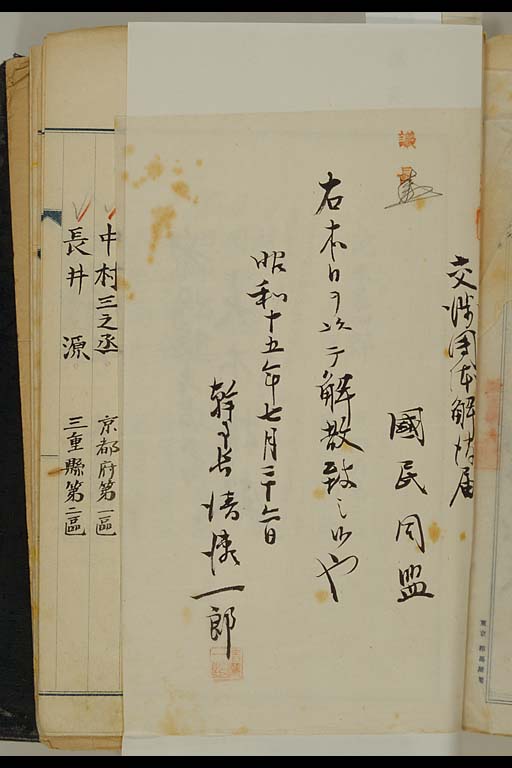 交渉団体解消届
國民同盟
議長
右本日ヲ以テ解散致シ候也
昭和十五年七月二十六日
幹事長 清瀬一郎
中村三之丞 京都府第一區
長井 源 三重縣第二區